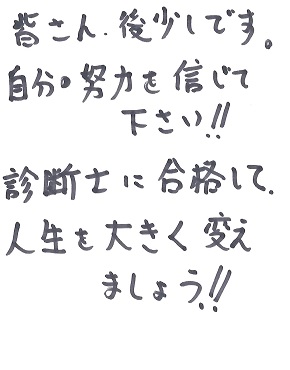 皆さん、後少しです。
自分の努力を信じて
下さい!!
診断士に合格して、
人生を大きく変え
ましょう!!